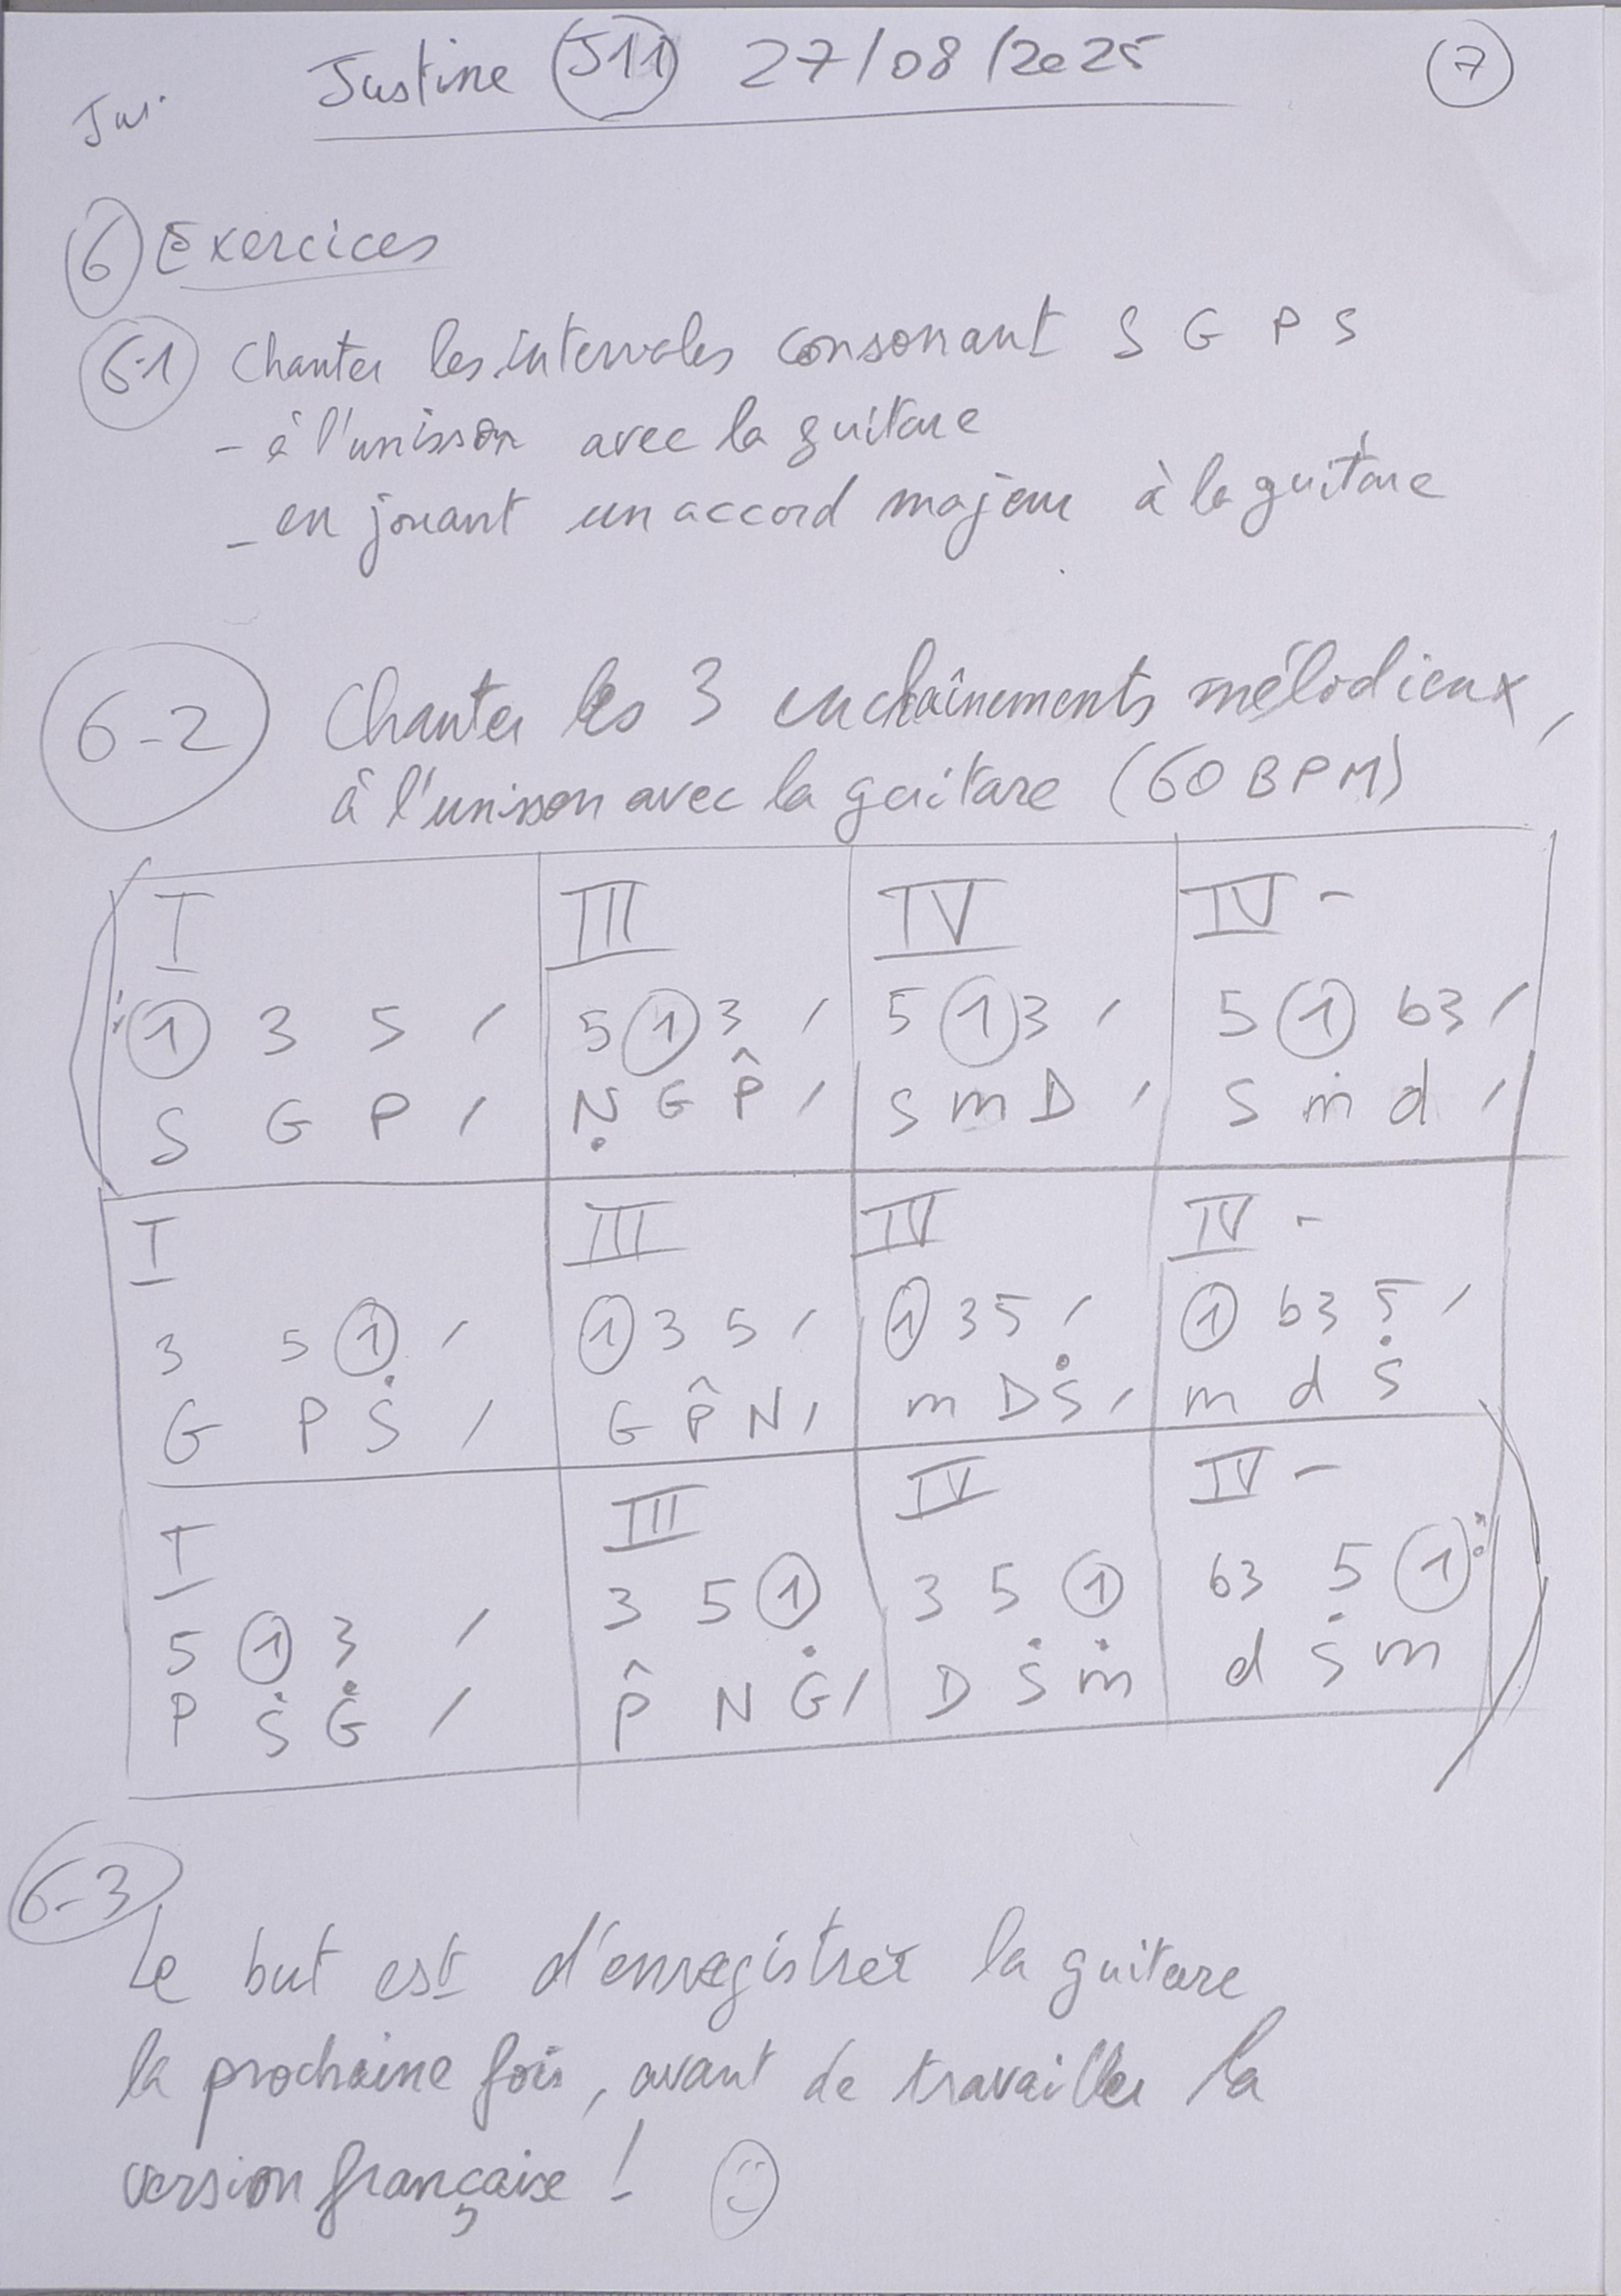 Justine J11 27/08/2025 7
Jus.
6 Exercices
6-1 Chanter les intervales consonant S G P S
- à l'unisson avec la guitare
- en jouant un accord majeur à la guitare
6-2 Chanter les 3 enchaînements mélodieux,
à l'unisson avec la guitare (60 BPM)
I III IV IV -
1 3 5 / 5 1 3 / 5 1 3 / 5 1 b3 /
S G P / Ṇ G P̂ / S m D / S ṁ d /
I III IV IV -
3 5 1 / 1 3 5 / 1 3 5 / 1 b3 5 /
G P Ṡ / G P̂ N / m D Ṡ / m d Ṡ
I III IV IV -
5 1 3 / 3 5 1 3 5 1 b3 5 1
P Ṡ Ġ / P̂ N Ġ / D Ṡ ṁ d Ṡ m
6-3
Le but est d'enregistrer la guitare
la prochaine fois, avant de travailler la
version française ! ☺